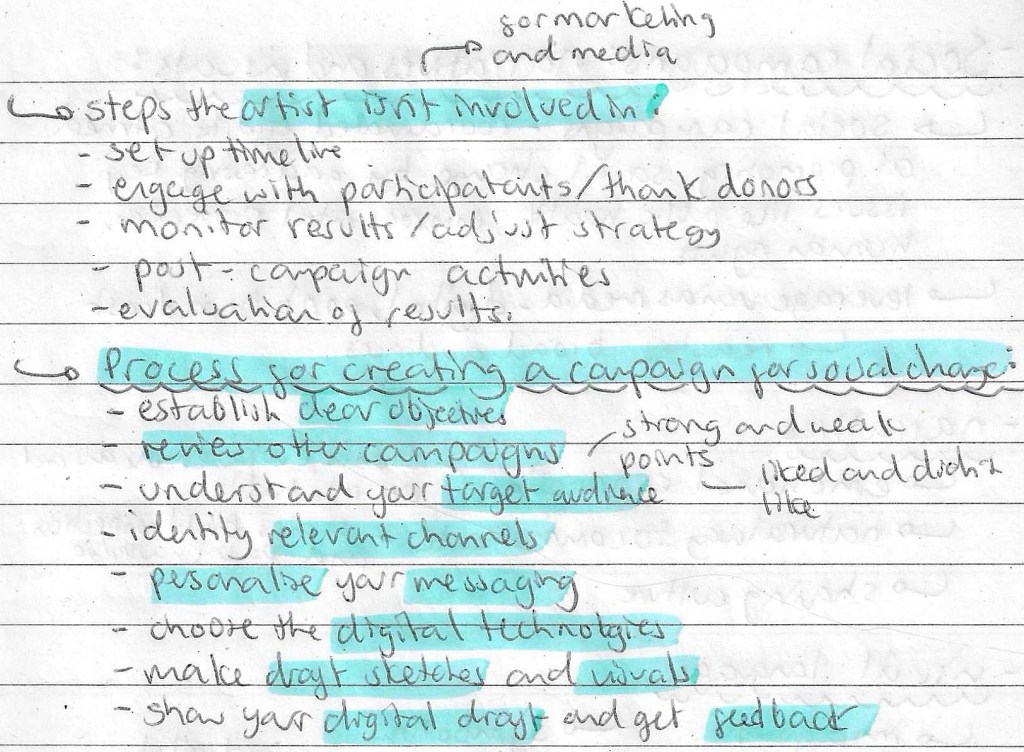 for marketing
and media
steps the artist isn't involved in:
- set up timeline
- engage with participatants/thank donors
- monitor results/adjust strategy
- post-campaign activities
- evaluation of results.
Process for creating a campaign for social change:
- establish clear objectives
- review other campaigns
strong and weak
points
liked and didn't
like
- understand your target audience
- identify relevant channels
- personalise your messaging
- choose the digital technologies
- make draft sketches and visuals
- show your digital draft and get feedback